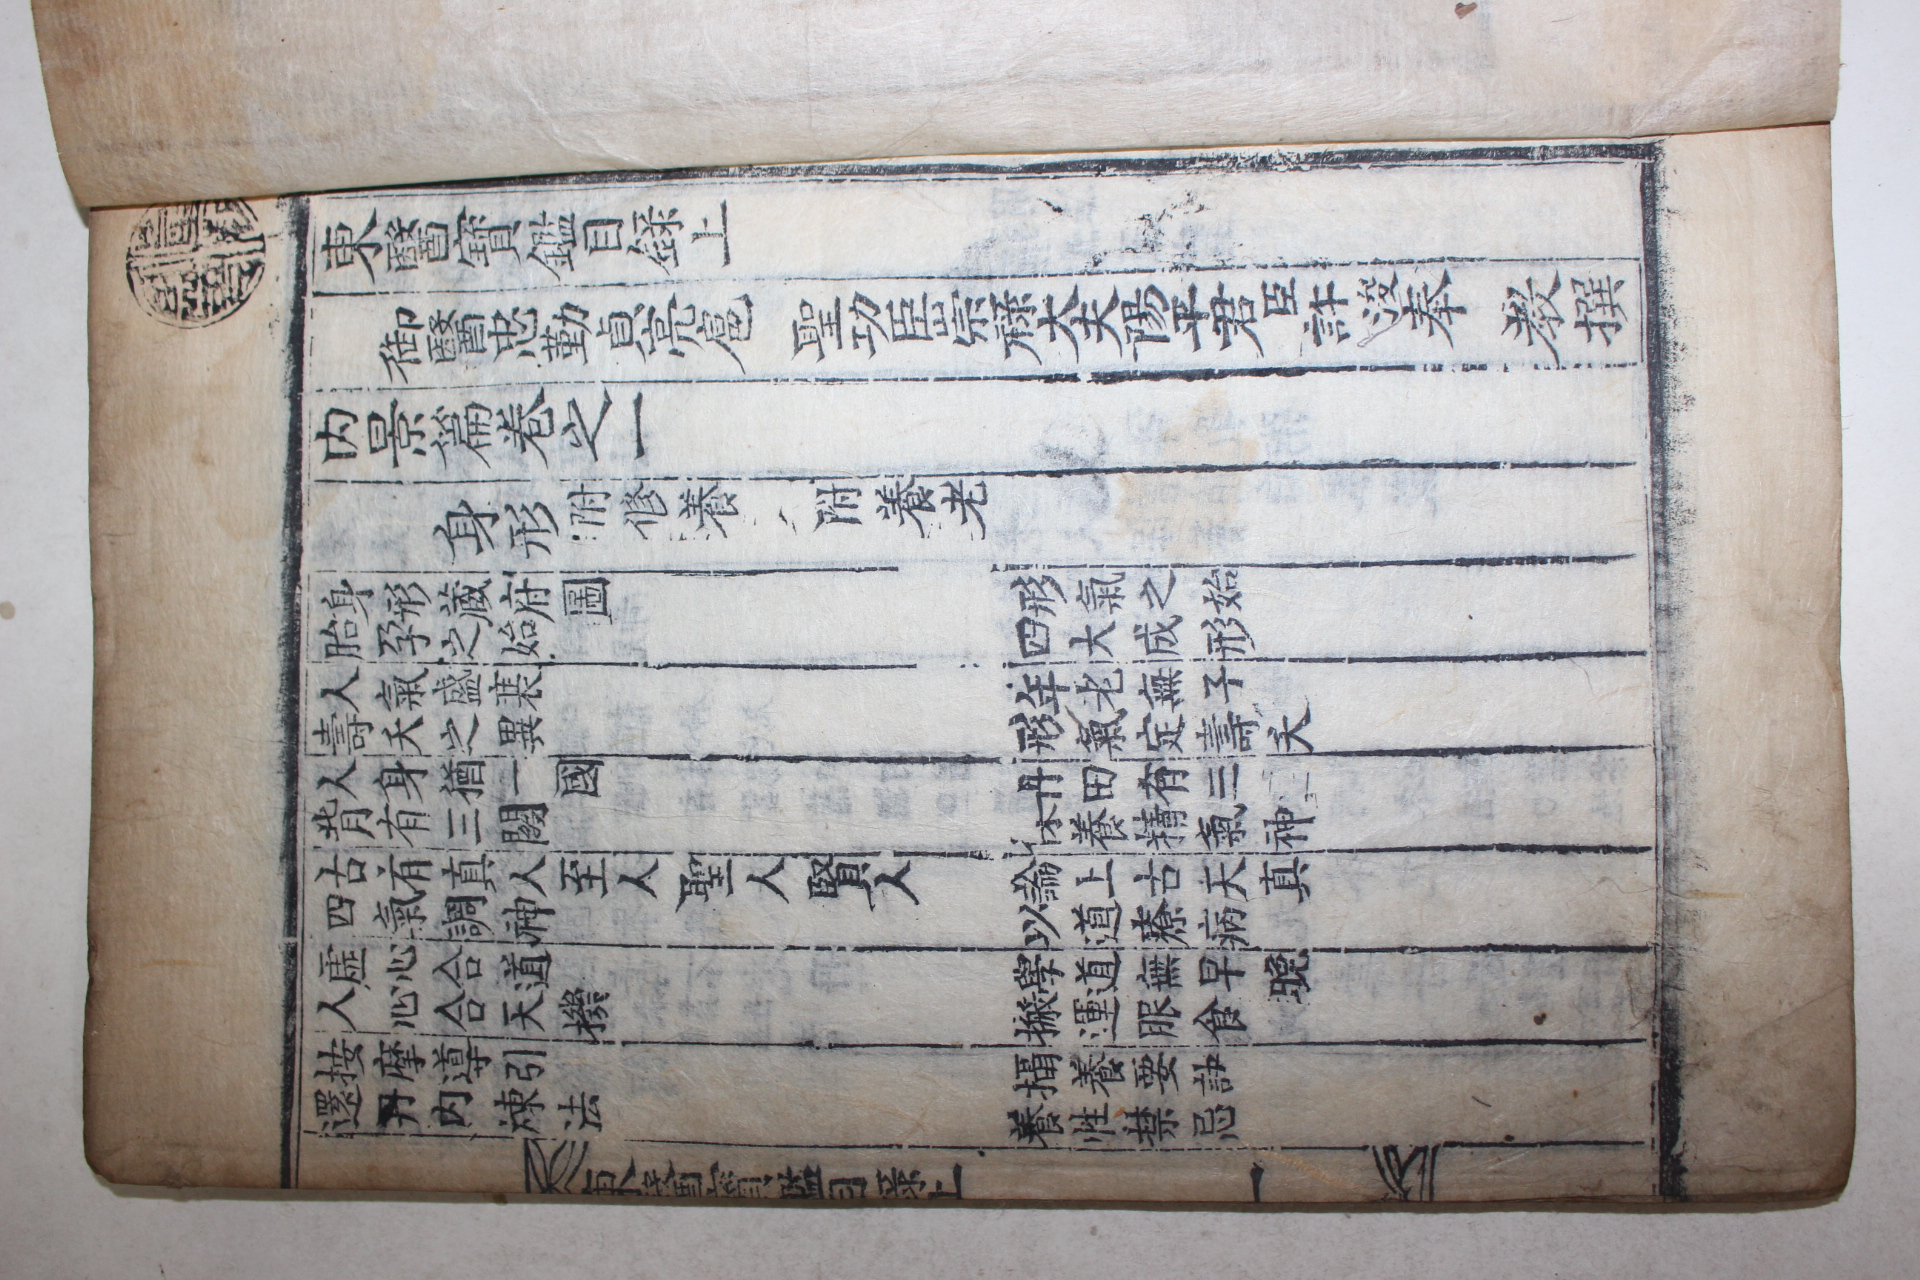 東醫寶鑑目録上
御醫忠勤貞亮扈　聖功臣崇祿大夫陽平君臣許浚奉　教撰
内景篇卷之一
身形　附修養　附養老
身形蔵府圖　形氣之始
胎孕之始　四大成形
人氣盛衰　年老無子
壽夭之異　形氣定壽夭
人身猶一國　丹田有三
背有三關　保養精氣神
古有真人至人聖人賢人　論上古天真
四氣調神　以道療病
虛心合道　學道無早晚
人心合天機　搬運服食
按摩導引　攝養要訣
還丹内煉法　養性禁忌
東醫寶鑑目録上　一